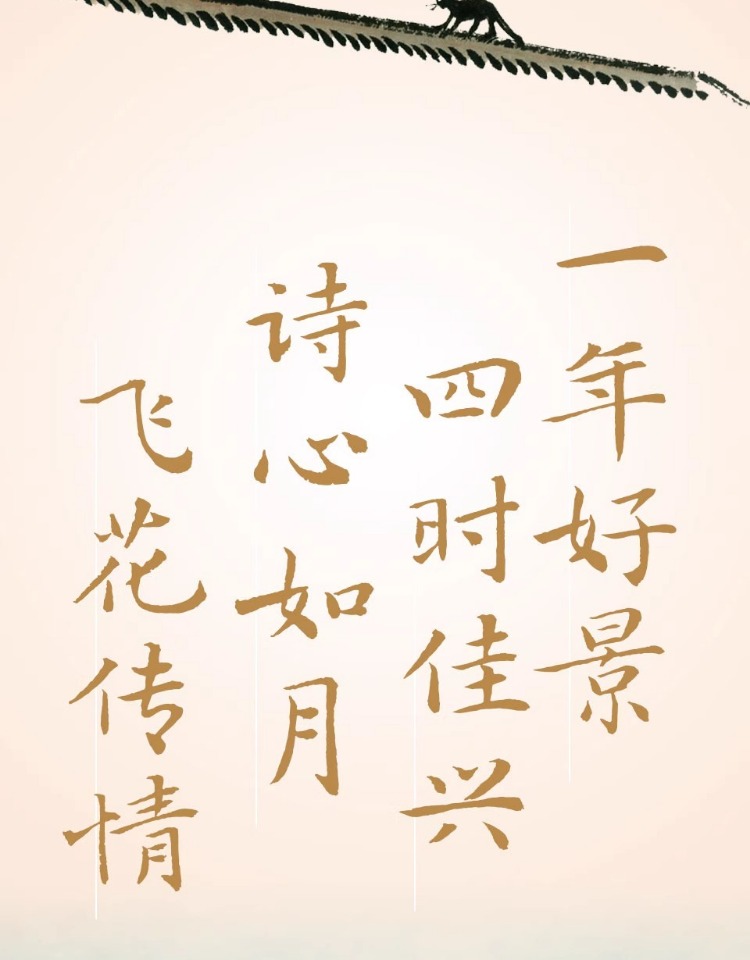 一年好景
四时佳兴
诗心如月
飞花传情